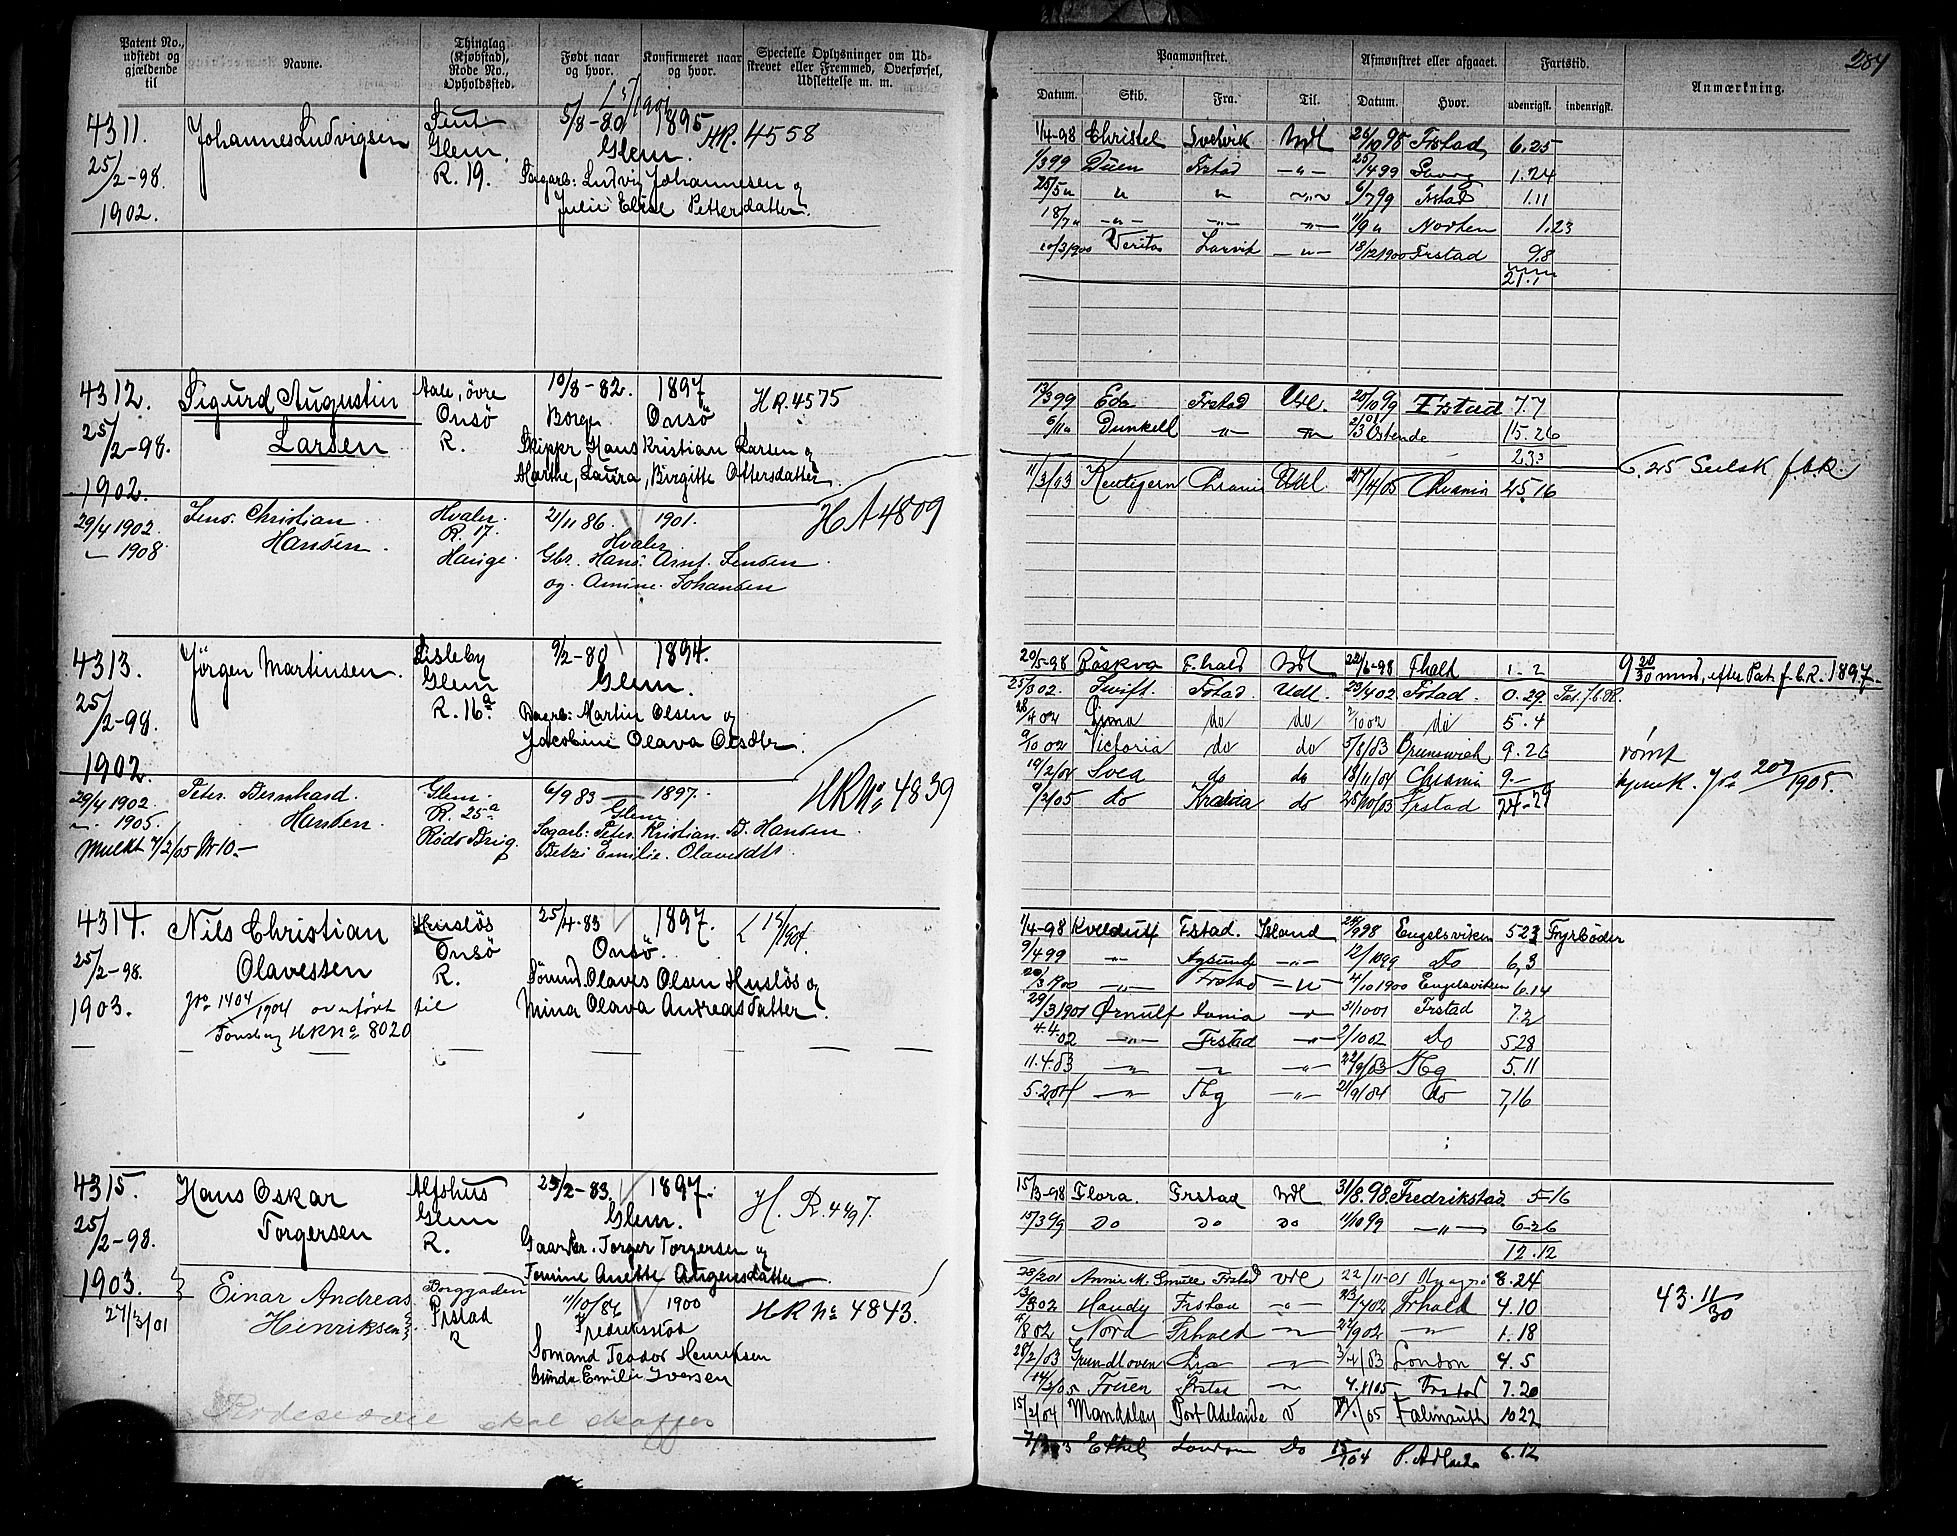 Patent No., udstedt og gjældende til
Navne.
Thinglag (Kjøbstad), Rode No., Opholdssted.
Født naar og hvor.
Konfirmeret naar og hvor.
Specielle Oplysninger om Udskrevet eller Fremmed, Overførsel, Udslettelse m. m.
4311. Johannes Ludvigsen 5/8-80 1895 HR. 4558
25/2-98. Glem. Glem.
1902. R. 19. Ludvig Johannesen og
Julie Elise Pettersdatter.
4312. Sigurd Augustin Aale, øvre 10/8-82. 1897 HR. 4575
25/2-98. Larsen Onsö Borge Onsö
1902. R. Skippr Hans Kristian Larsen og
Marthe, Laura, Birgitte Ottersdatter.
29/4 1902. Jens. Christian Hvaler. 2/11 86. 1901. HA 4809
1908 Hansen. R. 17. Hvaler
Hauge. Gbr. Hans Arnt. Jensen
og. Amine. Johansen
4313. Jörgen Martinsen. Lisleby 9/2-80 1894.
25/2-98. Glem Glem.
1902. R. 16a Martin Olsen og
Jacobine Olava Olsdtr.
29/4 1902. Peter. Bernhard. Glem. 6/9 83 1897. HR No 4839
1905. Hansen. R. 25a Glem
Mulkt 7/2/05 Kr 10.- Röds Brug. Sagarb: Peter. Kristian. B. Hansen
Betzi Emilie. Olavesdtr.
4314. Nils Christian Husløs 25/4-83 1897.
25/2-98. Olavessen Onsö Onsö.
1903. R. Olaves Olsen Husløs og
1404/1904 overført til Mina Olava Andreasdatter.
Tønsberg HR No 8020
4315. Hans Oskar Alfshus 25/2-83. 1897. H. R. 4497.
25/2-98. Torgersen Glem Glem.
1903. R. Gaarbr. Torger Torgersen og
Tomine Anette Augensdatter
27/3/01 Einar Andreas Borggaden 11/10/86 1900 HR No 4843.
Henriksen Frstad Fredriksstad
R Somand Teodor Henriksen
Gunda Emilie Iversen
skal skaffes
284
Paamønstret.
Afmønstret eller afgaaet.
Fartstid.
Anmærkning.
Datum. Skib. Fra. Til. Datum. Hvor. udenrigsk. indenrigsk.
1/4-98 Christel Svelvik Udl 26/10 98 Frstad 6.25
1/3 99 Duen Frstad -"- 25/4 99 1.24
25/5 " " " 6/7 99 Frstad 1.11
18/7 " -"- -"- -"- 11/9 " 1.23
10/3 1900 Veritas Larvik -"- 18/12 1900 Frstad 9.8
21.1
13/3 99 Eda Frstad Udl. 20/10 99 Frstad 7.7
6/11 " Dunkell -"- 2/3 01 Ostende 15.26
23.3
11/3/03 Kentigern Chrania Udl 27/4/05 Chrania 25.16
25 Seilsk f.b.R.
20/5-98 Röskva F.hald Udl 22/6-98 Fhald 1.2 9 20/30 mnd, efter Pat. f.b.R. 1897.
25/3 02. Swift. Fstad. Udl. 23/4 02 Frstad. 0.29. Pat. f.b.R.
28/4 02 Lima do do 2/10 02 do 5.4
9/10 02 Victoria do do 5/8/03 Brunswick 9.26 römt
19/2/04 Svea do do 18/11/04 Chrania 9.-
9/2/05 do do 28/10/05 Frstad 24-29
1/4-98 Kveldulf Fstad. Island 24/9 98 Engelsviken 5 23 Fyrbøder
9/4 99 -"- -"- 12/10 99 Do 6,3
20/3 1900 -"- Frstad -"- 4/10 1900 Engelsviken 6.14
29/3 1901 Ørnulf -"- 3/10 01 Frstad 7.2
4.4.02 -"- Frstad -"- 2/10 02 Do 5 28
11.4.03 -"- -"- -"- 22/9/03 Tbg 5.11
5.2.04 -"- Tbg -"- 21/9/04 do 7,16
15/3-98 Flora. Frstad Udl 31/8.98 Fredrikstad 5-16
15/3 99 Do Do Do 11/10 99 -"- 6.26
12.12
28/2 01 Annie M. Smull Frstad Udl 22/11-01 8.24
3/3 02 Handy Frstad -"- 23/7 02 Frhald 4.10 43. 11/30
4/8 02 Nord Frhald -"- 22/9 02 -"- 1.18
28/2/03 Grundloven Cra -"- 3/7/03 London 4.5
14/3/05 Fruen Frstad -"- 4.11 05 Frstad 7.20
15/2/04 Mandalay Port Adelaide 05 Falmouth 10 22
Ethel London Do 15/1 04 P. Adlaide 6.12